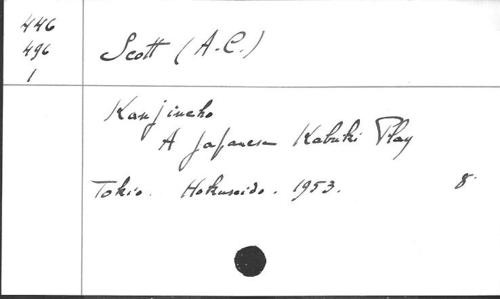 446
496
1
Scott (A.C.)
Kanjincho
A Japanese Kabuki Play
Tokio. Hokuseido. 1953. 8°